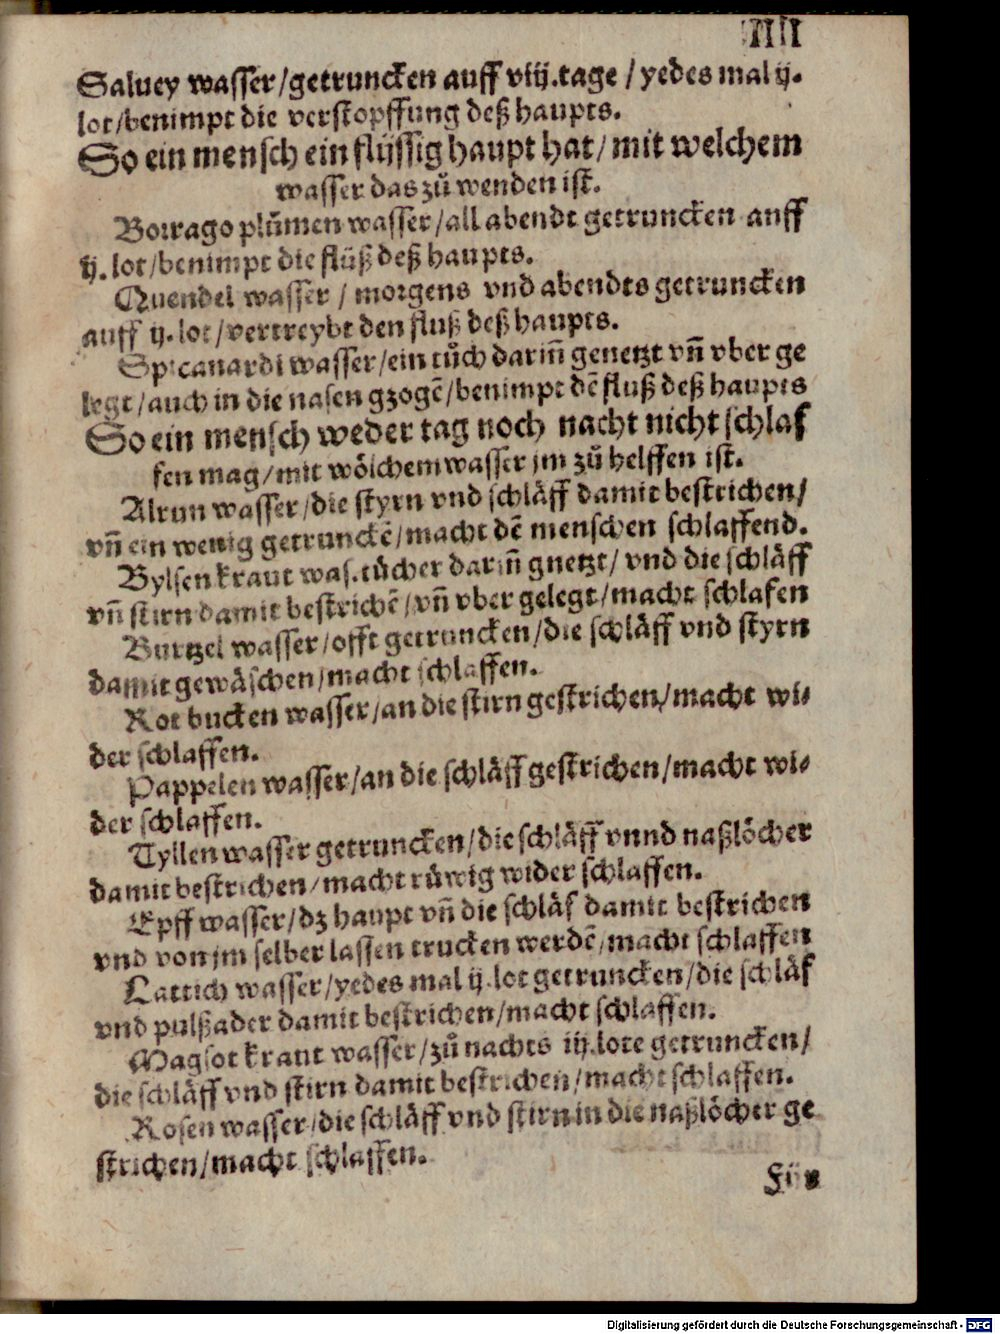 IIII
Saluey wasser/getruncken auff viij.tage / yedes mal ij.
lot/benimpt die verstopffung deß haupts.
So ein mensch ein flüssig haupt hat/ mit welchem
wasser das zů wenden ist.
Borrago plůmen wasser/all abendt getruncken auff
ij. lot/benimpt die flüß deß haupts.
Quendel wasser / morgens vnd abendts getruncken
auff ij. lot/vertreybt den fluß deß haupts.
Spicanardi wasser/ein tůch dariñ genetzt vñ vber ge
legt/auch in die nasen gzogē/benimpt dē fluß deß haupts
So ein mensch weder tag noch nacht nicht schlaf
fen mag/mit wölchem wasser jm zů helffen ist.
Alrun wasser/die styrn vnd schläff damit bestrichen/
vñ ein wenig getrunckē/macht dē menschen schlaffend.
Bylsen kraut was.tücher dariñ gnetzt/ vnd die schläff
vñ stirn damit bestrichē/vñ vber gelegt/macht schlafen
Burtzel wasser/offt getruncken/die schläff vnd styrn
damit gewäschen/macht schlaffen.
Rot bucken wasser/an die stirn gestrichen/macht wi-
der schlaffen.
Pappelen wasser/an die schläff gestrichen/macht wi-
der schlaffen.
Tyllen wasser getruncken/die schläff vnnd naßlöcher
damit bestrichen/macht rüwig wider schlaffen.
Epff wasser/dz haupt vñ die schläf damit bestrichen
vnd von jm selber lassen trucken werdē/macht schlaffen
Lattich wasser/yedes mal ij.lot getruncken/die schläf
vnd pulßader damit bestrichen/macht schlaffen.
Magsot kraut wasser/zů nachts iij.lote getruncken/
die schläff vnd stirn damit bestrichen/macht schlaffen.
Rosen wasser/die schläff vnd stirn in die naßlöcher ge
strichen/macht schlaffen.
Für
Digitalisierung gefördert durch die Deutsche Forschungsgemeinschaft - DFG